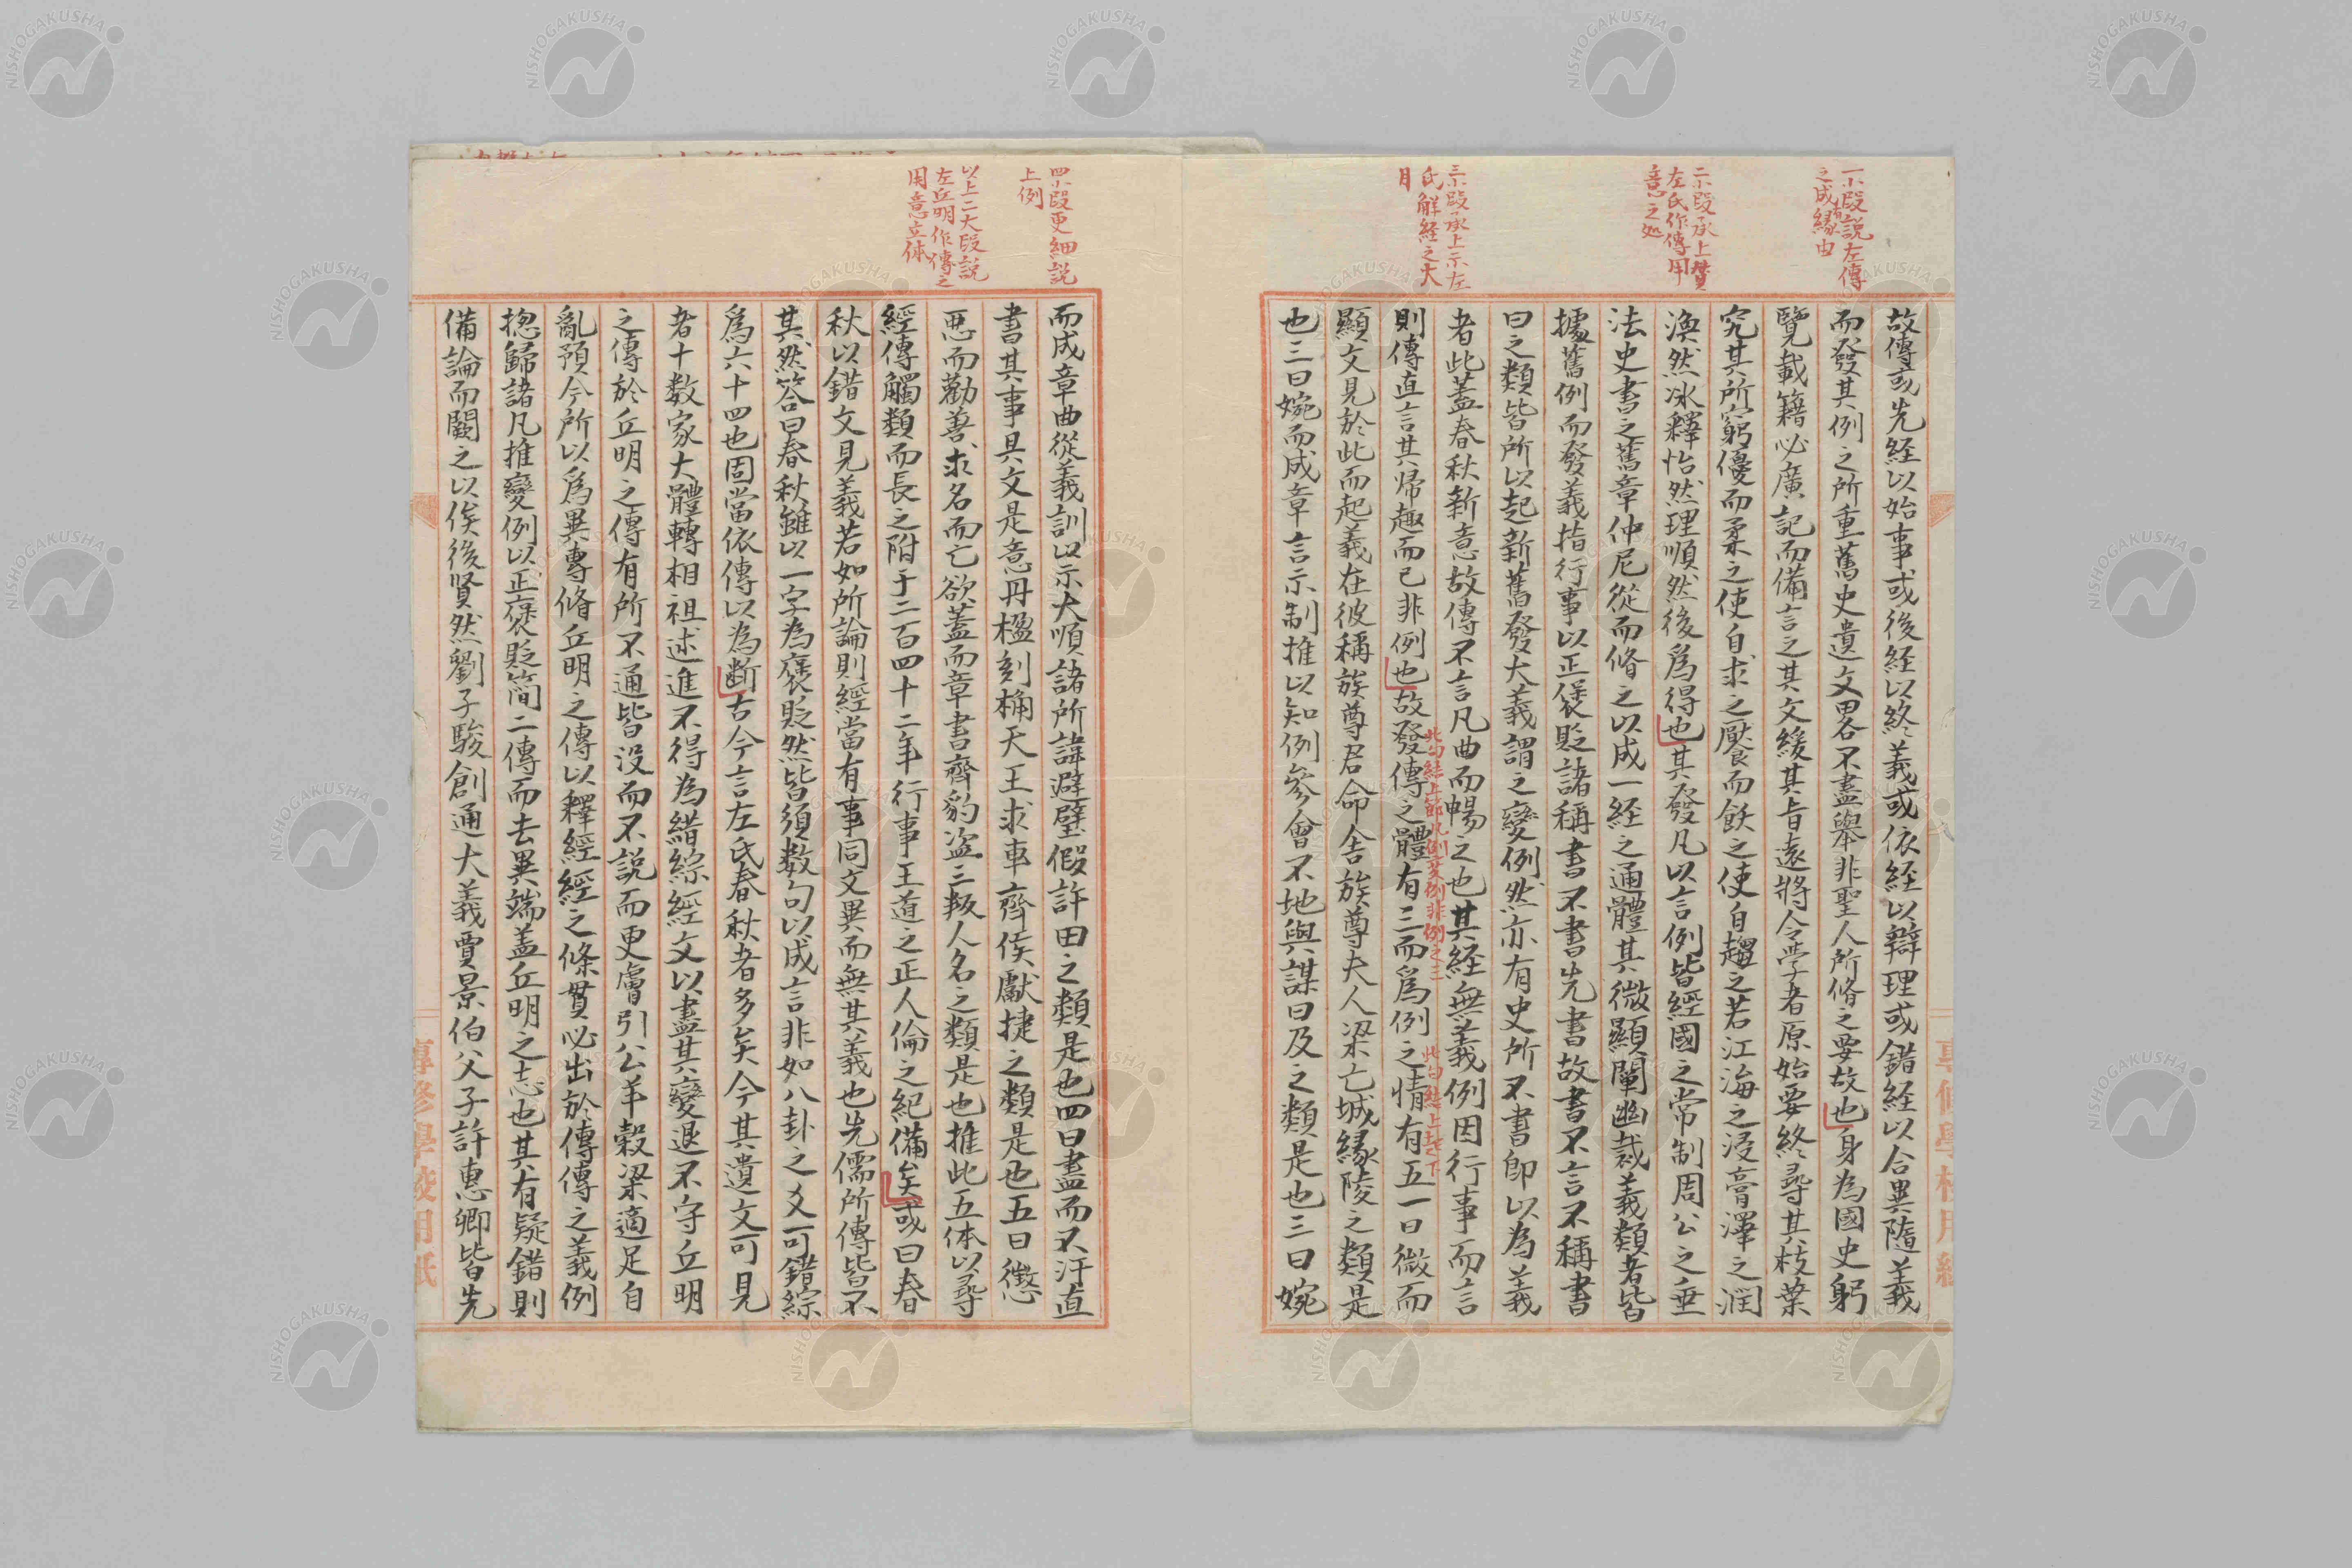 一小段説左傳
之成者縁由
二小段承上賛
左氏作傳用
意之処
三小段承上示左
氏解経之大
目
故傳或先経以始事或後経以終義或依経以辯理或錯経以合異隨義
而發其例之所重舊史遺文畧不盡舉非聖人所脩之要故也身為國史躬
覽載籍必廣記而備言之其文緩其旨遠將令学者原始要終尋其枝葉
究其所窮優而柔之使自求之厭而飫之使自趨之若江海之浸膏澤之潤
渙然冰釋怡然理順然後爲得也其發凡以言例皆經國之常制周公之垂
法史書之舊章仲尼從而脩之以成一経之通體其微顯闡幽裁義類者皆
據舊例而發義指行事以正褒貶諸稱書不書先書故書不言不稱書
曰之類皆所以起新舊發大義謂之變例然亦有史所不書即以為義
者此蓋春秋新意故傳不言凡曲而暢之也其経無義例因行事而言
則傳直言其帰趣而已非例也故發傳之體有三而爲例之情有五一曰微而
此句結上節凡例変例非例之三
此句結上起下
顯文見於此而起義在彼稱族尊君命舍族尊夫人梁亡城縁陵之類是
也二曰婉而成章言示制推以知例參會不地與謀曰及之類是也三曰婉
四小段更細説
上例
以上二大段説
左丘明作傳之
用意立体
而成章曲從義訓以示大順諸所諱避璧假許田之類是也四曰盡而不汙直
書其事具文是意丹楹刻桷天王求車齊侯獻捷之類是也五曰懲
惡而勸善求名而亡欲蓋而章書齊豹盗三叛人名之類是也推此五体以尋
經傳觸類而長之附于二百四十二年行事王道之正人倫之紀備矣或曰春
秋以錯文見義若如所論則經當有事同文異而無其義也先儒所傳皆不
其然答曰春秋雖以一字為褒貶然皆須数句以成言非如八卦之爻可錯綜
爲六十四也固當依傳以為断古今言左氏春秋者多矣今其遺文可見
者十数家大體轉相祖述進不得為錯綜經文以盡其變退不守丘明
之傳於丘明之傳有所不通皆没而不説而更膚引公羊穀梁適足自
亂預今所以爲異專脩丘明之傳以釋經經之條貫必出於傳傳之義例
揔歸諸凡推變例以正褒貶簡二傳而去異端盖丘明之志也其有疑錯則
備論而闕之以俟後賢然劉子駿創通大義賈景伯父子許惠卿皆先
專修學校用紙